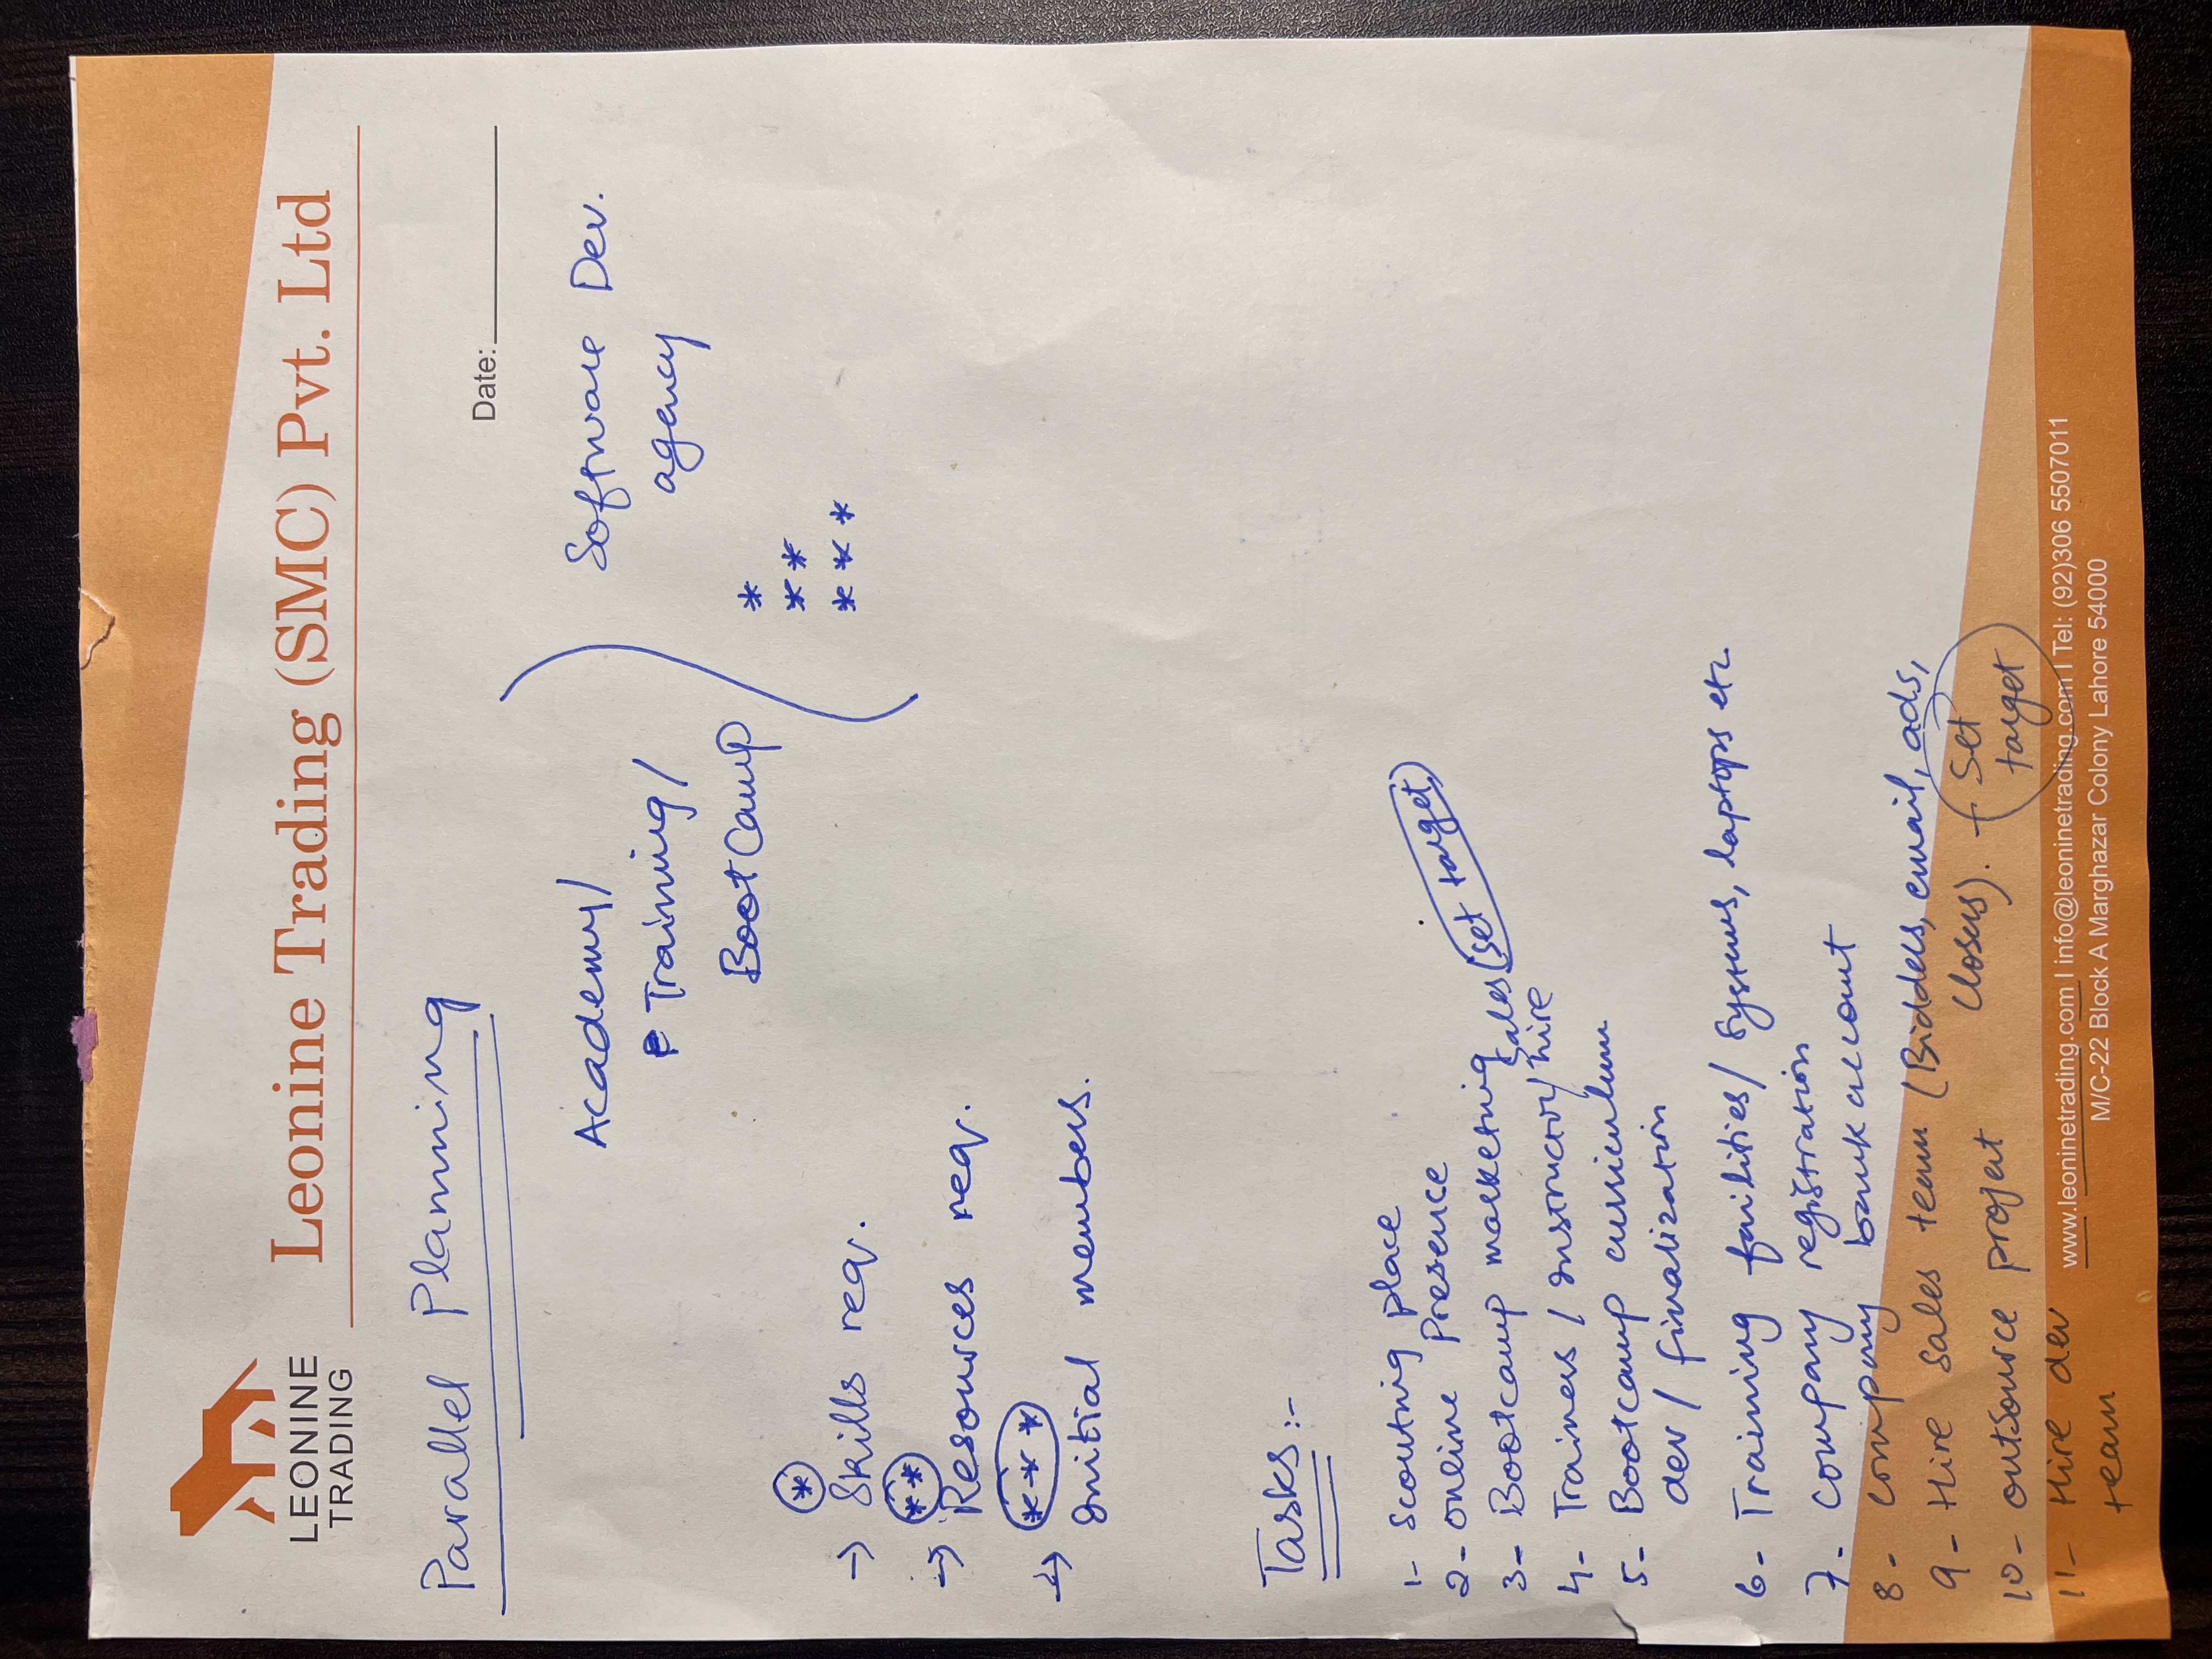 LEONINE
TRADING
Leonine Trading (SMC) Pvt. Ltd
Date:
Parallel Planning
Academy/
Training/
BootCamp
Software Dev.
agency
*
**
***
*
→ Skills req.
**
→ Resources req.
***
→ Initial members.
Tasks:-
1- Scouting place
2- online presence
3- Bootcamp marketing sales (set target)
4- Trainers / instructor/ hire
5- Bootcamp curriculum
dev / finalization
6- Training failities/ systems, laptops etc
7- Company registration
8- company bank account
9- Hire sales team (Bidders, email, ads,
closers). + set
target
10- outsource projet
11- Hire dev
team
www.leoninetrading.com | info@leoninetrading.com | Tel: (92)306 5507011
M/C-22 Block A Marghazar Colony Lahore 54000